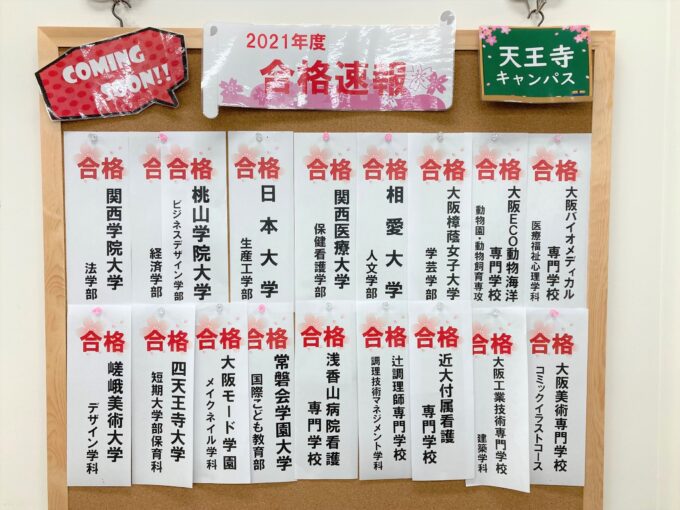 COMING
SOON!!
2021年度
合格速報
天王寺
キャンパス
合格
大阪バイオメディカル
専門学校
医療福祉心理学科
合格
大阪ECO動物海洋
専門学校
動物園・動物飼育専攻
合格
大阪樟蔭女子大学
学芸学部
合格
相愛大学
人文学部
合格
関西医療大学
保健看護学部
合格
日本大学
生産工学部
合格
桃山学院大学
ビジネスデザイン学部
合
経済学部
合格
関西学院大学
法学部
合格
大阪美術専門学校
コミックイラストコース
合格
大阪工業技術専門学校
建築学科
合格
近大付属看護
専門学校
合格
辻調理師専門学校
調理技術マネジメント学科
合格
浅香山病院看護
専門学校
合格
常磐会学園大学
国際こども教育部
合格
大阪モード学園
メイクネイル学科
合格
四天王寺大学
短期大学部保育科
合格
嵯峨美術大学
デザイン学科